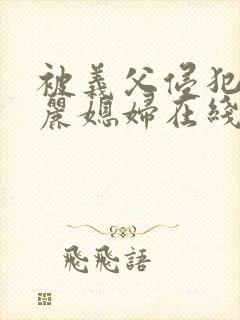 被義父侵犯
麗媳婦在綫
飛飛語